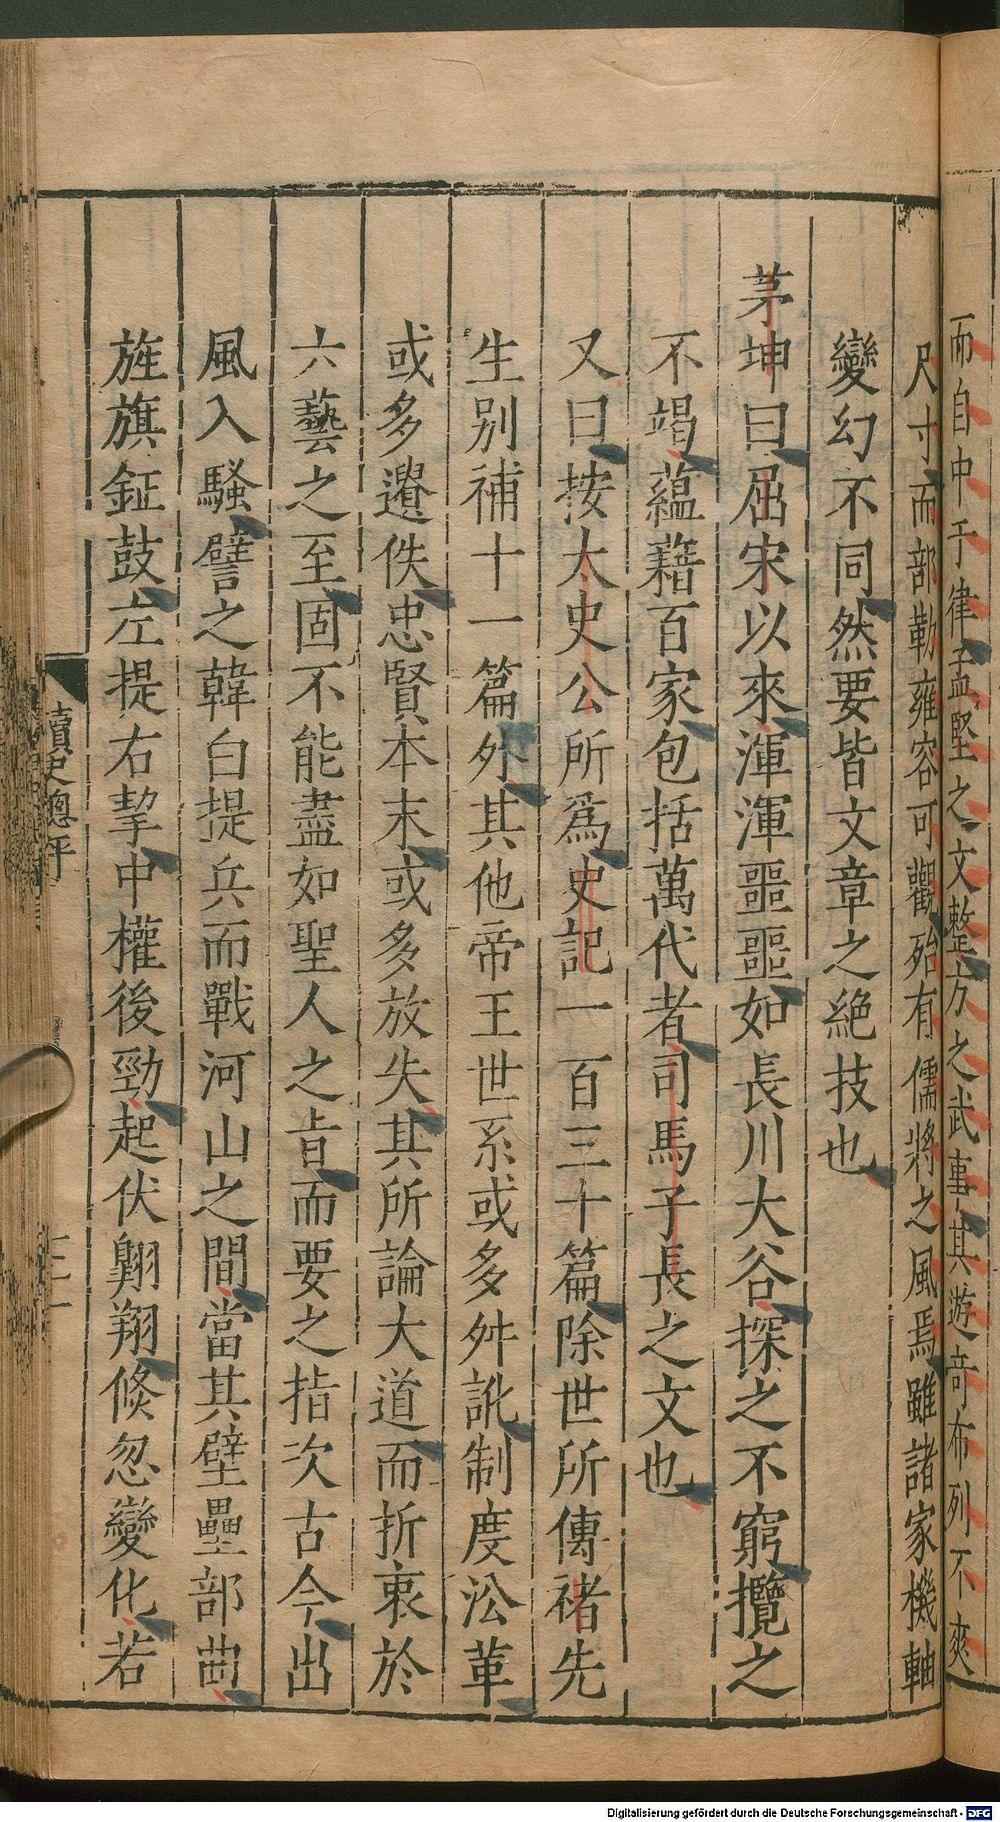 而自中于律孟堅之文整方之武事其遊奇布列不爽
尺寸而部勒雍容可觀殆有儒將之風焉雖諸家機軸
變幻不同然要皆文章之絕技也
茅坤曰屈宋以來渾渾噩噩如長川大谷探之不窮攬之
不竭蘊藉百家包括萬代者司馬子長之文也
又曰按太史公所爲史記一百三十篇除世所傳褚先
生別補十一篇外其他帝王世系或多舛訛制度沿革
或多遺佚忠賢本末或多放失其所論大道而折衷於
六藝之至固不能盡如聖人之旨而要之指次古今出
風入騷譬之韓白提兵而戰河山之間當其壁壘部曲
旌旗鉦鼓左提右挈中權後勁起伏翺翔倏忽變化若
讀史總評
三
Digitalisierung gefördert durch die Deutsche Forschungsgemeinschaft - DFG